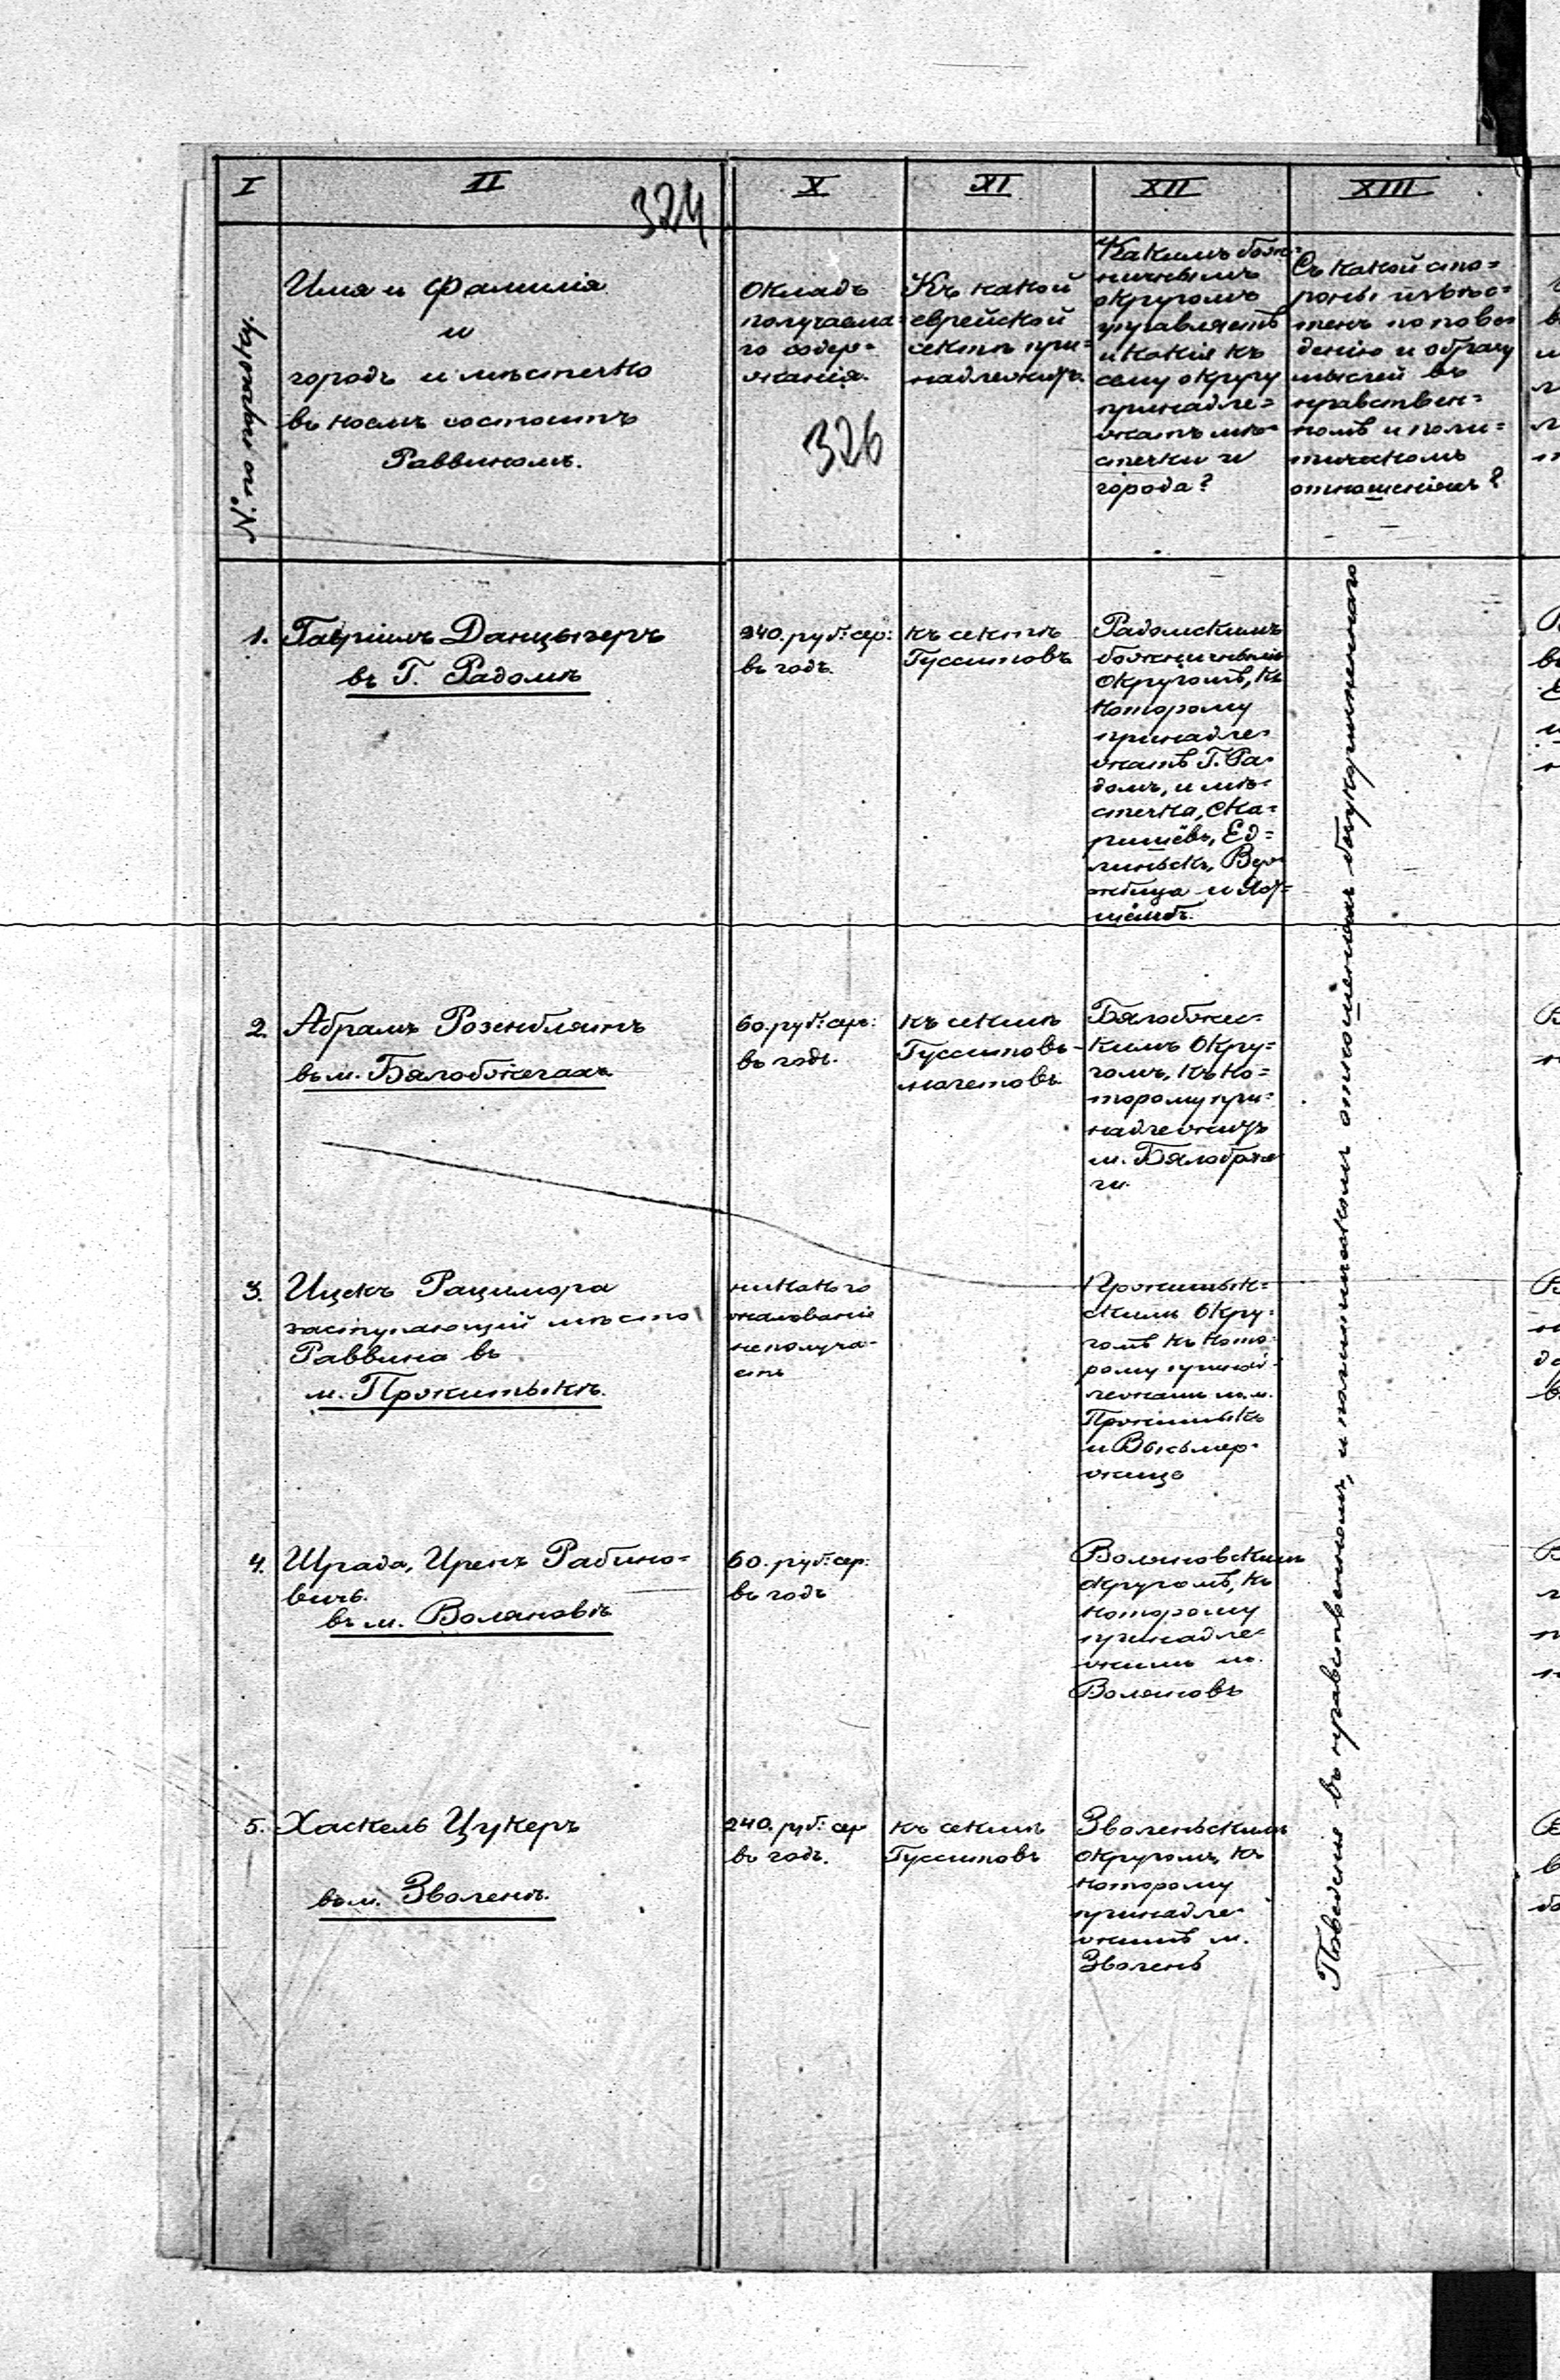 I
II
324
X
XI
XII
XIII
N. по порядку.
Имя и Фамилія
и
городъ и мѣстечко
въ коемъ состоитъ
Раввиномъ.
Окладъ
получаема-
го содер=
жанія.
326
Къ какой
еврейской
сектѣ при=
надлежитъ.
Какимъ бож=
ничнымъ
округомъ
управляетъ
и какія къ
сему округу
принадле=
жатъ мѣ-
стечки и
города?
Съ какой сто=
роны извѣс=
тенъ по пове=
денію и образу
мыслей въ
нравствен=
номъ и поли=
тическомъ
отношеніяхъ?
1.
Гавріилъ Данцыгеръ
въ Г. Радомѣ
240. руб: сер:
въ годъ.
къ сектѣ
Гусситовъ
Радомскимъ
божничнымъ
Округомъ, къ
которому
принадле=
жатъ Г. Ра-
домъ, и мѣ-
стечка, Ска=
ришёвъ, Ед=
линьскъ,
и
2.
Абрамъ Розенблятъ
въ м. Бялобжегахъ.
60. руб: сер:
въ годъ.
къ сектѣ
Гусситовъ-
Бялобжес-
кимъ Окру=
гомъ, къ ко=
торому при-
надлежитъ
м. Бялобже
ги.
3.
Ицекъ Рацимора
заступающій мѣсто
Раввина въ
м. Пржитыкѣ.
никакого
жалованія
неполуча-
етъ
Пржитык=
скимъ Окру-
гомъ къ кото-
рому принад-
лежатъ м.м.
Пржитыкъ
и Высьмер-
жице
4.
Шрада, Иренъ Рабино=
вичъ.
въ м. Волановѣ
60. руб: сер:
въ годъ
Волановскимъ
округомъ, къ
которому
принадле-
житъ м.
Волановъ
5.
Хаскель Цукеръ
въ м. Зволенѣ.
240. руб: сер
въ годъ.
къ сектѣ
Гусситовъ
Зволеньскимъ
округомъ, къ
которому
принадле-
житъ м.
Зволень
Поведенія въ нравственномъ, и политическомъ отношеніяхъ безукоризненнаго